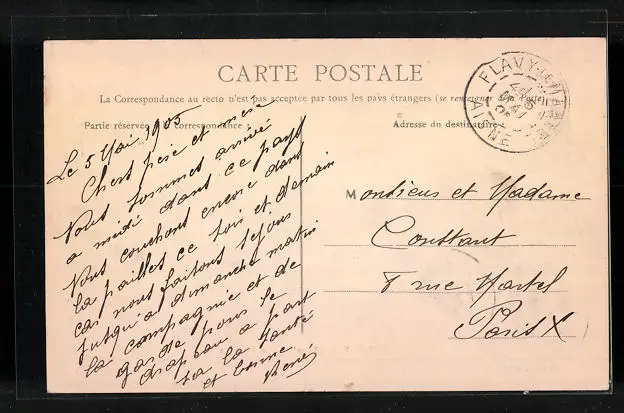 CARTE POSTALE
La Correspondance au recto n'est pas acceptée par tous les pays étrangers (se renseigner à la Poste)
Partie réservée à la correspondance
Adresse du destinataire
FLAVY-LE-MARTEL
AISNE
Le 5 Mai 1905
Chers père et mère
Nous sommes arrivé
a midi dans ce pays
Nous couchons encore dans
la pailles ce soir et demain
car nous faisons séjour
jusqu'a dimanche matin
la compagnie et de
garde pour le
drapeau a part
sa la santé
et bonne
René
Monsieur et Madame
Constant
8 rue Martel
Paris X